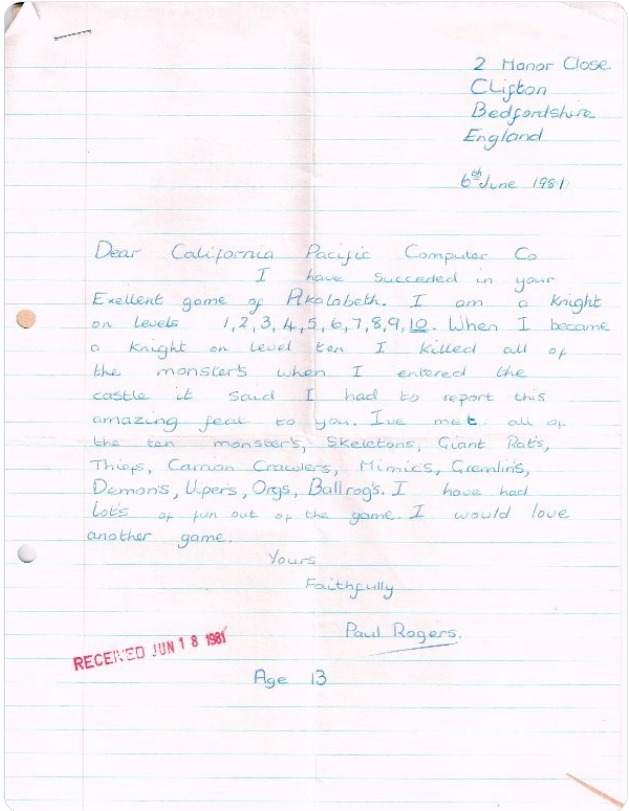 2 Manor Close
Clifton
Bedfordshire
England
6th June 1981
Dear California Pacific Computer Co
I have Succeeded in your
Exellent game of Akalabeth. I am a Knight
on Levels 1,2,3,4,5,6,7,8,9,10. When I became
a Knight on level ten I killed all of
the monster's when I entered the
castle it said I had to report this
amazing feat to you. I've met all of
the ten monster's, Skeletons, Giant Rat's,
Thiefs, Carrion Crawlers, Mimics, Gremlin's,
Demon's, Vipers, Orgs, Ballrog's. I have had
lot's of fun out of the game. I would love
another game.
Yours
Faithfully
Paul Rogers.
RECEIVED JUN 18 1981
Age 13